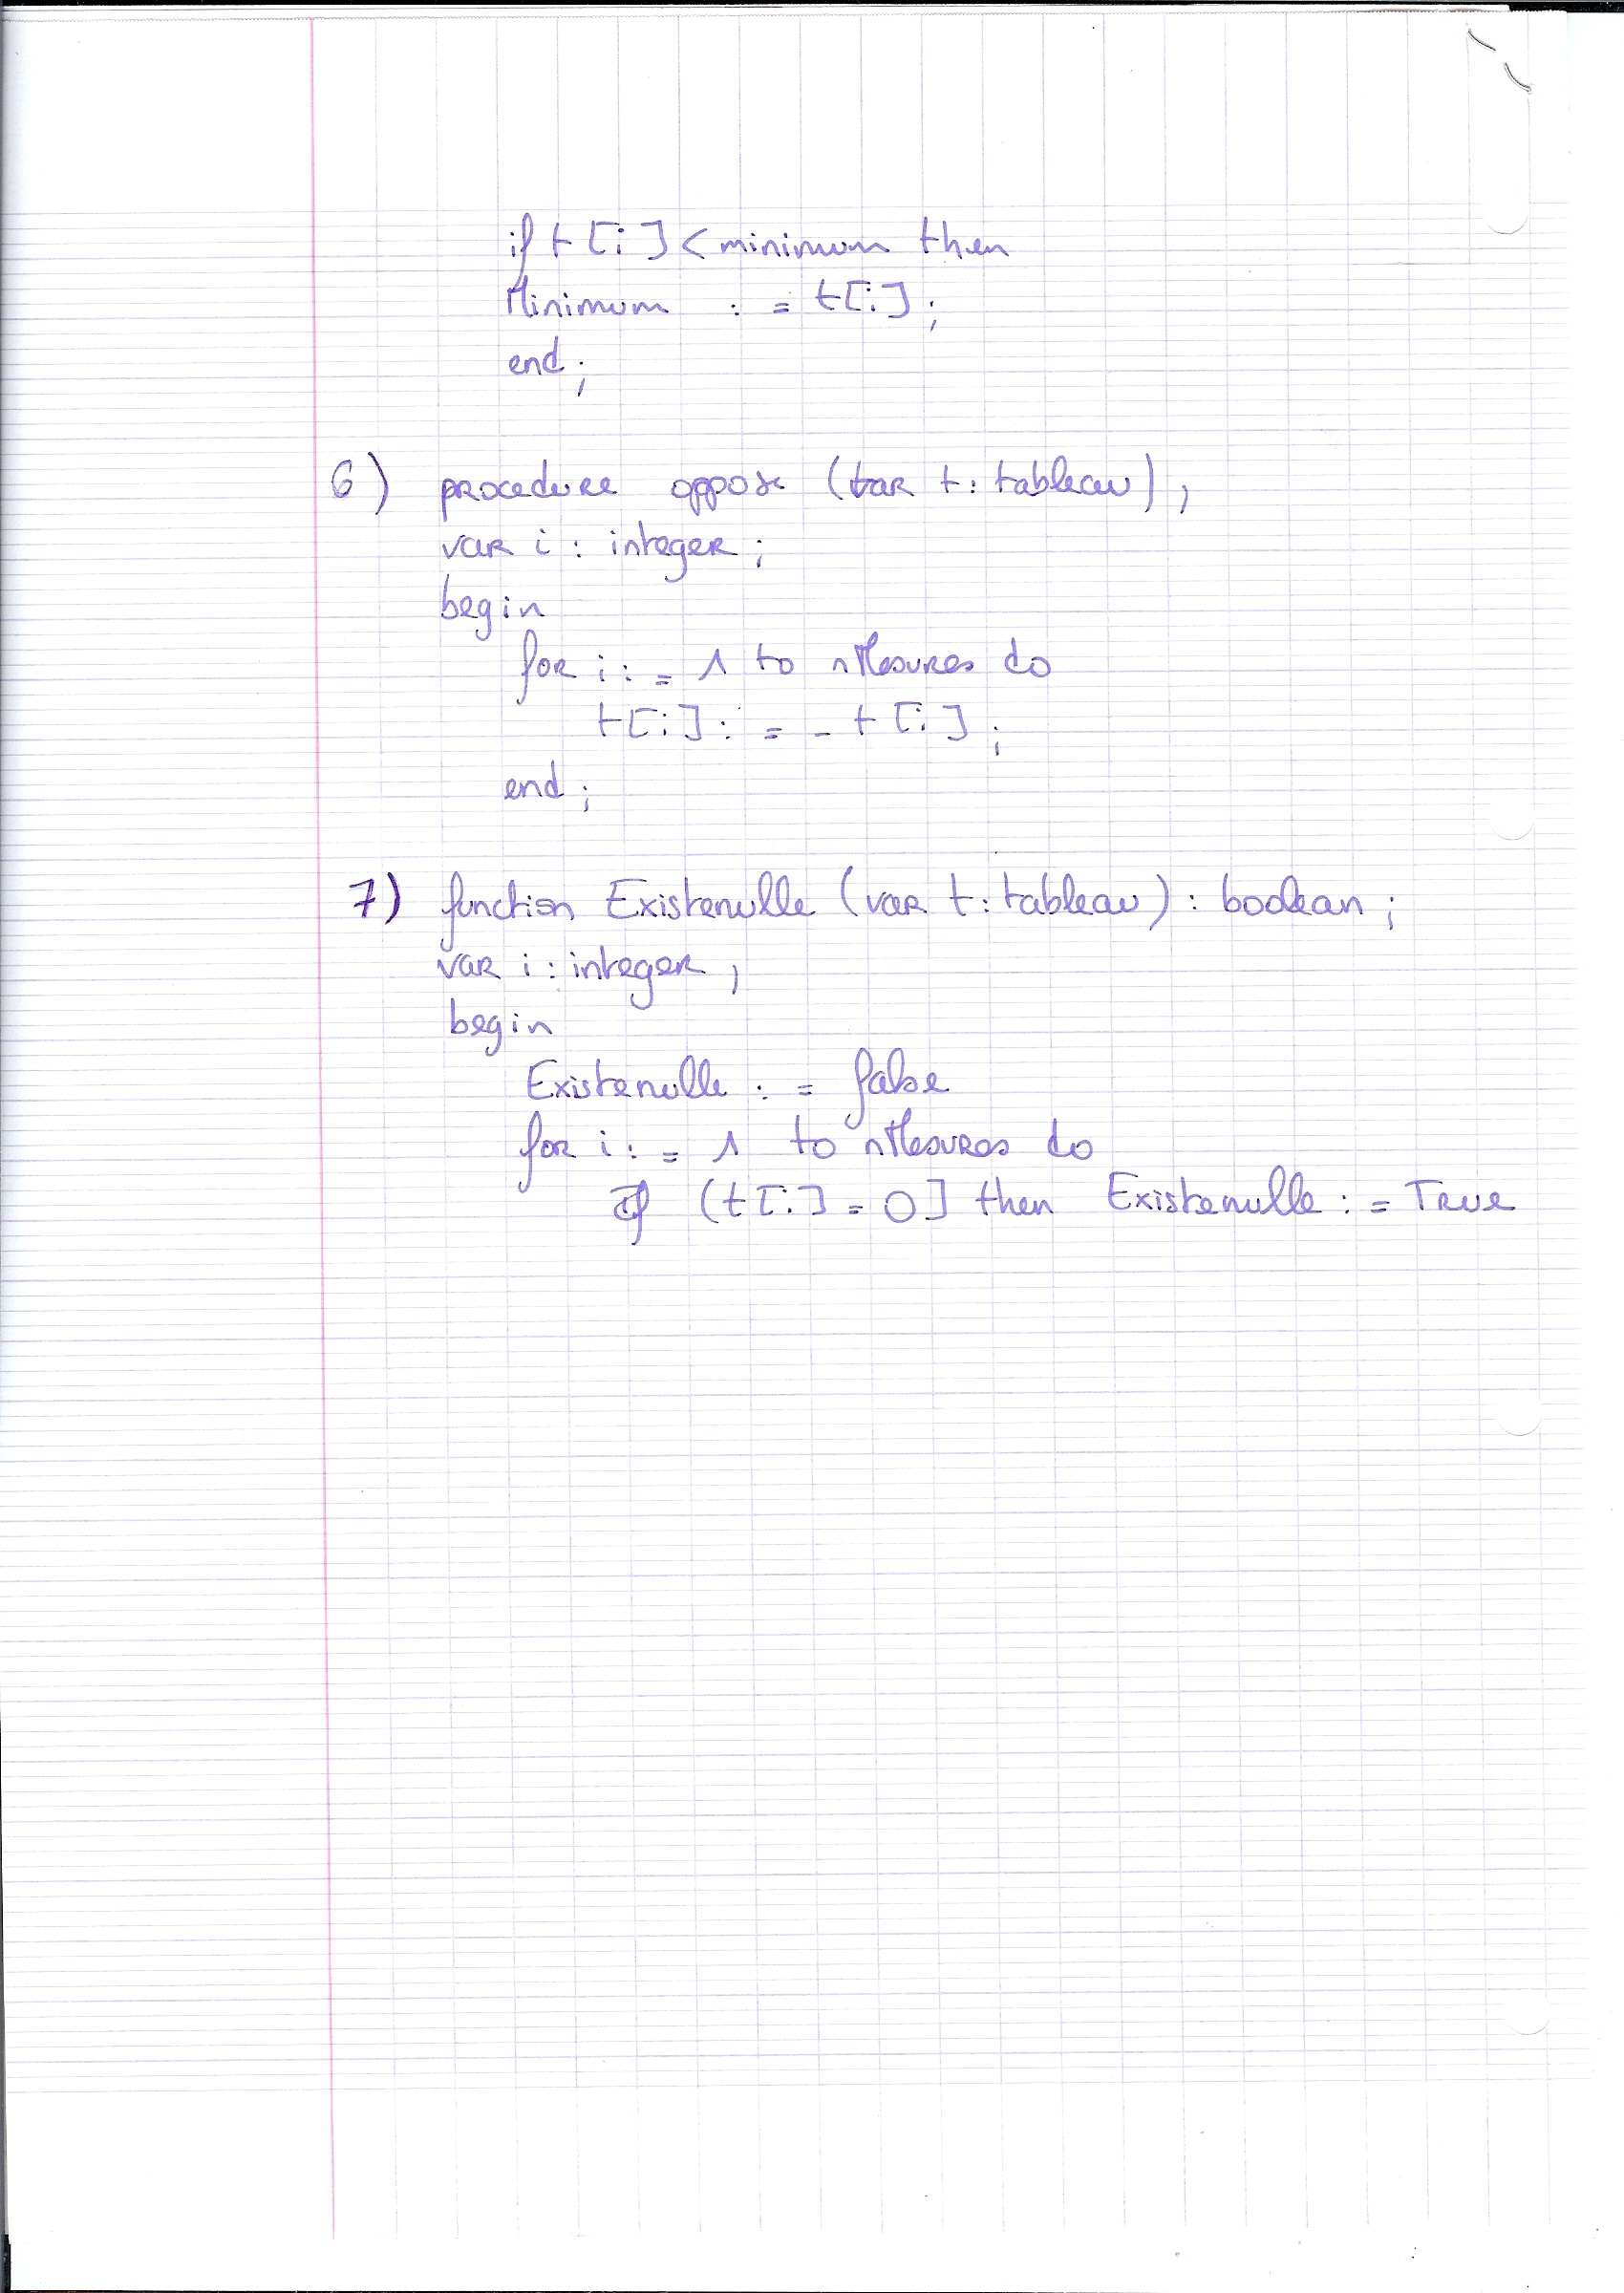 if t[i] < minimum then
Minimum := t[i];
end;
6) procedure oppose (var t: tableau);
var i : integer ;
begin
for i := 1 to nMesures do
t[i] := - t[i] ;
end ;
7) function Existenulle (var t: tableau) : boolean ;
var i : integer ;
begin
Existenulle := false
for i := 1 to nMesures do
If (t[i] = 0] then Existenulle := True